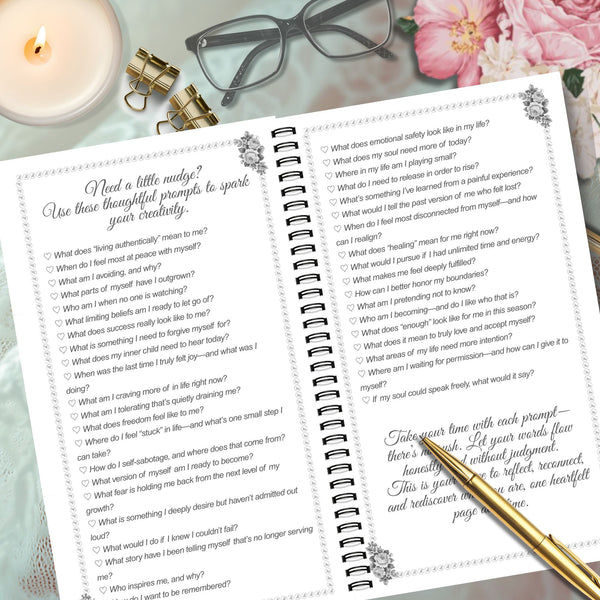 Need a little nudge?
Use these thoughtful prompts to spark
your creativity.
♡ What does "living authentically" mean to me?
♡ When do I feel most at peace with myself?
♡ What am I avoiding, and why?
♡ What parts of myself have I outgrown?
♡ Who am I when no one is watching?
♡ What limiting beliefs am I ready to let go of?
♡ What does success really look like to me?
♡ What is something I need to forgive myself for?
♡ What does my inner child need to hear today?
♡ When was the last time I truly felt joy—and what was I
doing?
♡ What am I craving more of in life right now?
♡ What am I tolerating that's quietly draining me?
♡ What does freedom feel like to me?
♡ Where do I feel "stuck" in life—and what's one small step I
can take?
♡ How do I self-sabotage, and where does that come from?
♡ What version of myself am I ready to become?
♡ What fear is holding me back from the next level of my
growth?
♡ What is something I deeply desire but haven't admitted out
loud?
♡ What would I do if I knew I couldn't fail?
♡ What story have I been telling myself that's no longer serving
me?
♡ Who inspires me, and why?
do I want to be remembered?
♡ What does emotional safety look like in my life?
♡ What does my soul need more of today?
♡ Where in my life am I playing small?
♡ What do I need to release in order to rise?
♡ What's something I've learned from a painful experience?
♡ What would I tell the past version of me who felt lost?
♡ When do I feel most disconnected from myself—and how
can I realign?
♡ What does "healing" mean for me right now?
♡ What would I pursue if I had unlimited time and energy?
♡ What makes me feel deeply fulfilled?
♡ How can I better honor my boundaries?
♡ What am I pretending not to know?
♡ Who am I becoming—and do I like who that is?
♡ What does "enough" look like for me in this season?
♡ What does it mean to truly love and accept myself?
♡ What areas of my life need more intention?
♡ Where am I waiting for permission—and how can I give it to
myself?
♡ If my soul could speak freely, what would it say?
Take your time with each prompt—
there's rush. Let your words flow
honestly without judgment.
This is your to reflect, reconnect,
and rediscover are, one heartfelt
page time.